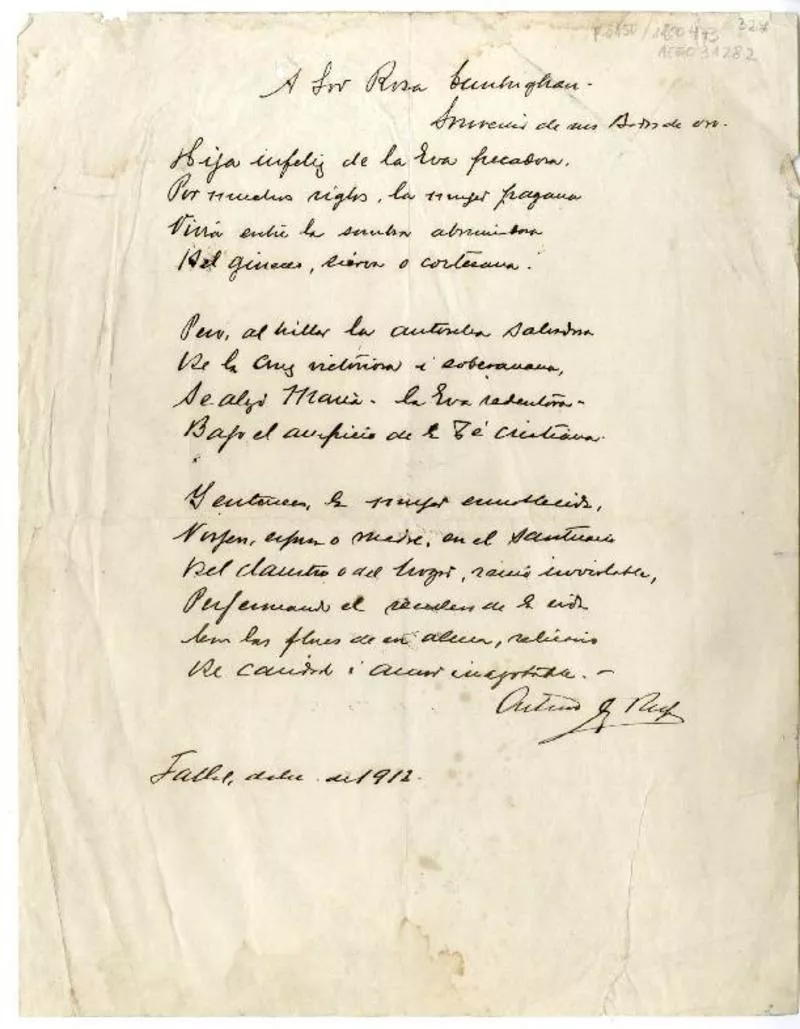 327
A Sor Rosa Cuninghan.
Souvenir de sus Bodas de oro.
Hija infeliz de la Eva pecadora,
Por muchos siglos, la mujer pagana
Vivió entre la sombra abrumadora
Del gineceo, sierva o cortesana.
Pero, al brillar la antorcha salvadora
De la Cruz victoriosa i soberanana,
Se alzó María - la Eva redentora -
Bajo el auspicio de la Fé cristiana.
Y entonces, la mujer ennoblecida,
Virjen, esposa o madre, en el santuario
Del claustro o del hogar, reinó inviolable,
Perfumando el sendero de la vida
Con las flores de su alma, relicario
De caridad i amor inagotable. -
Arturo
de 1912.